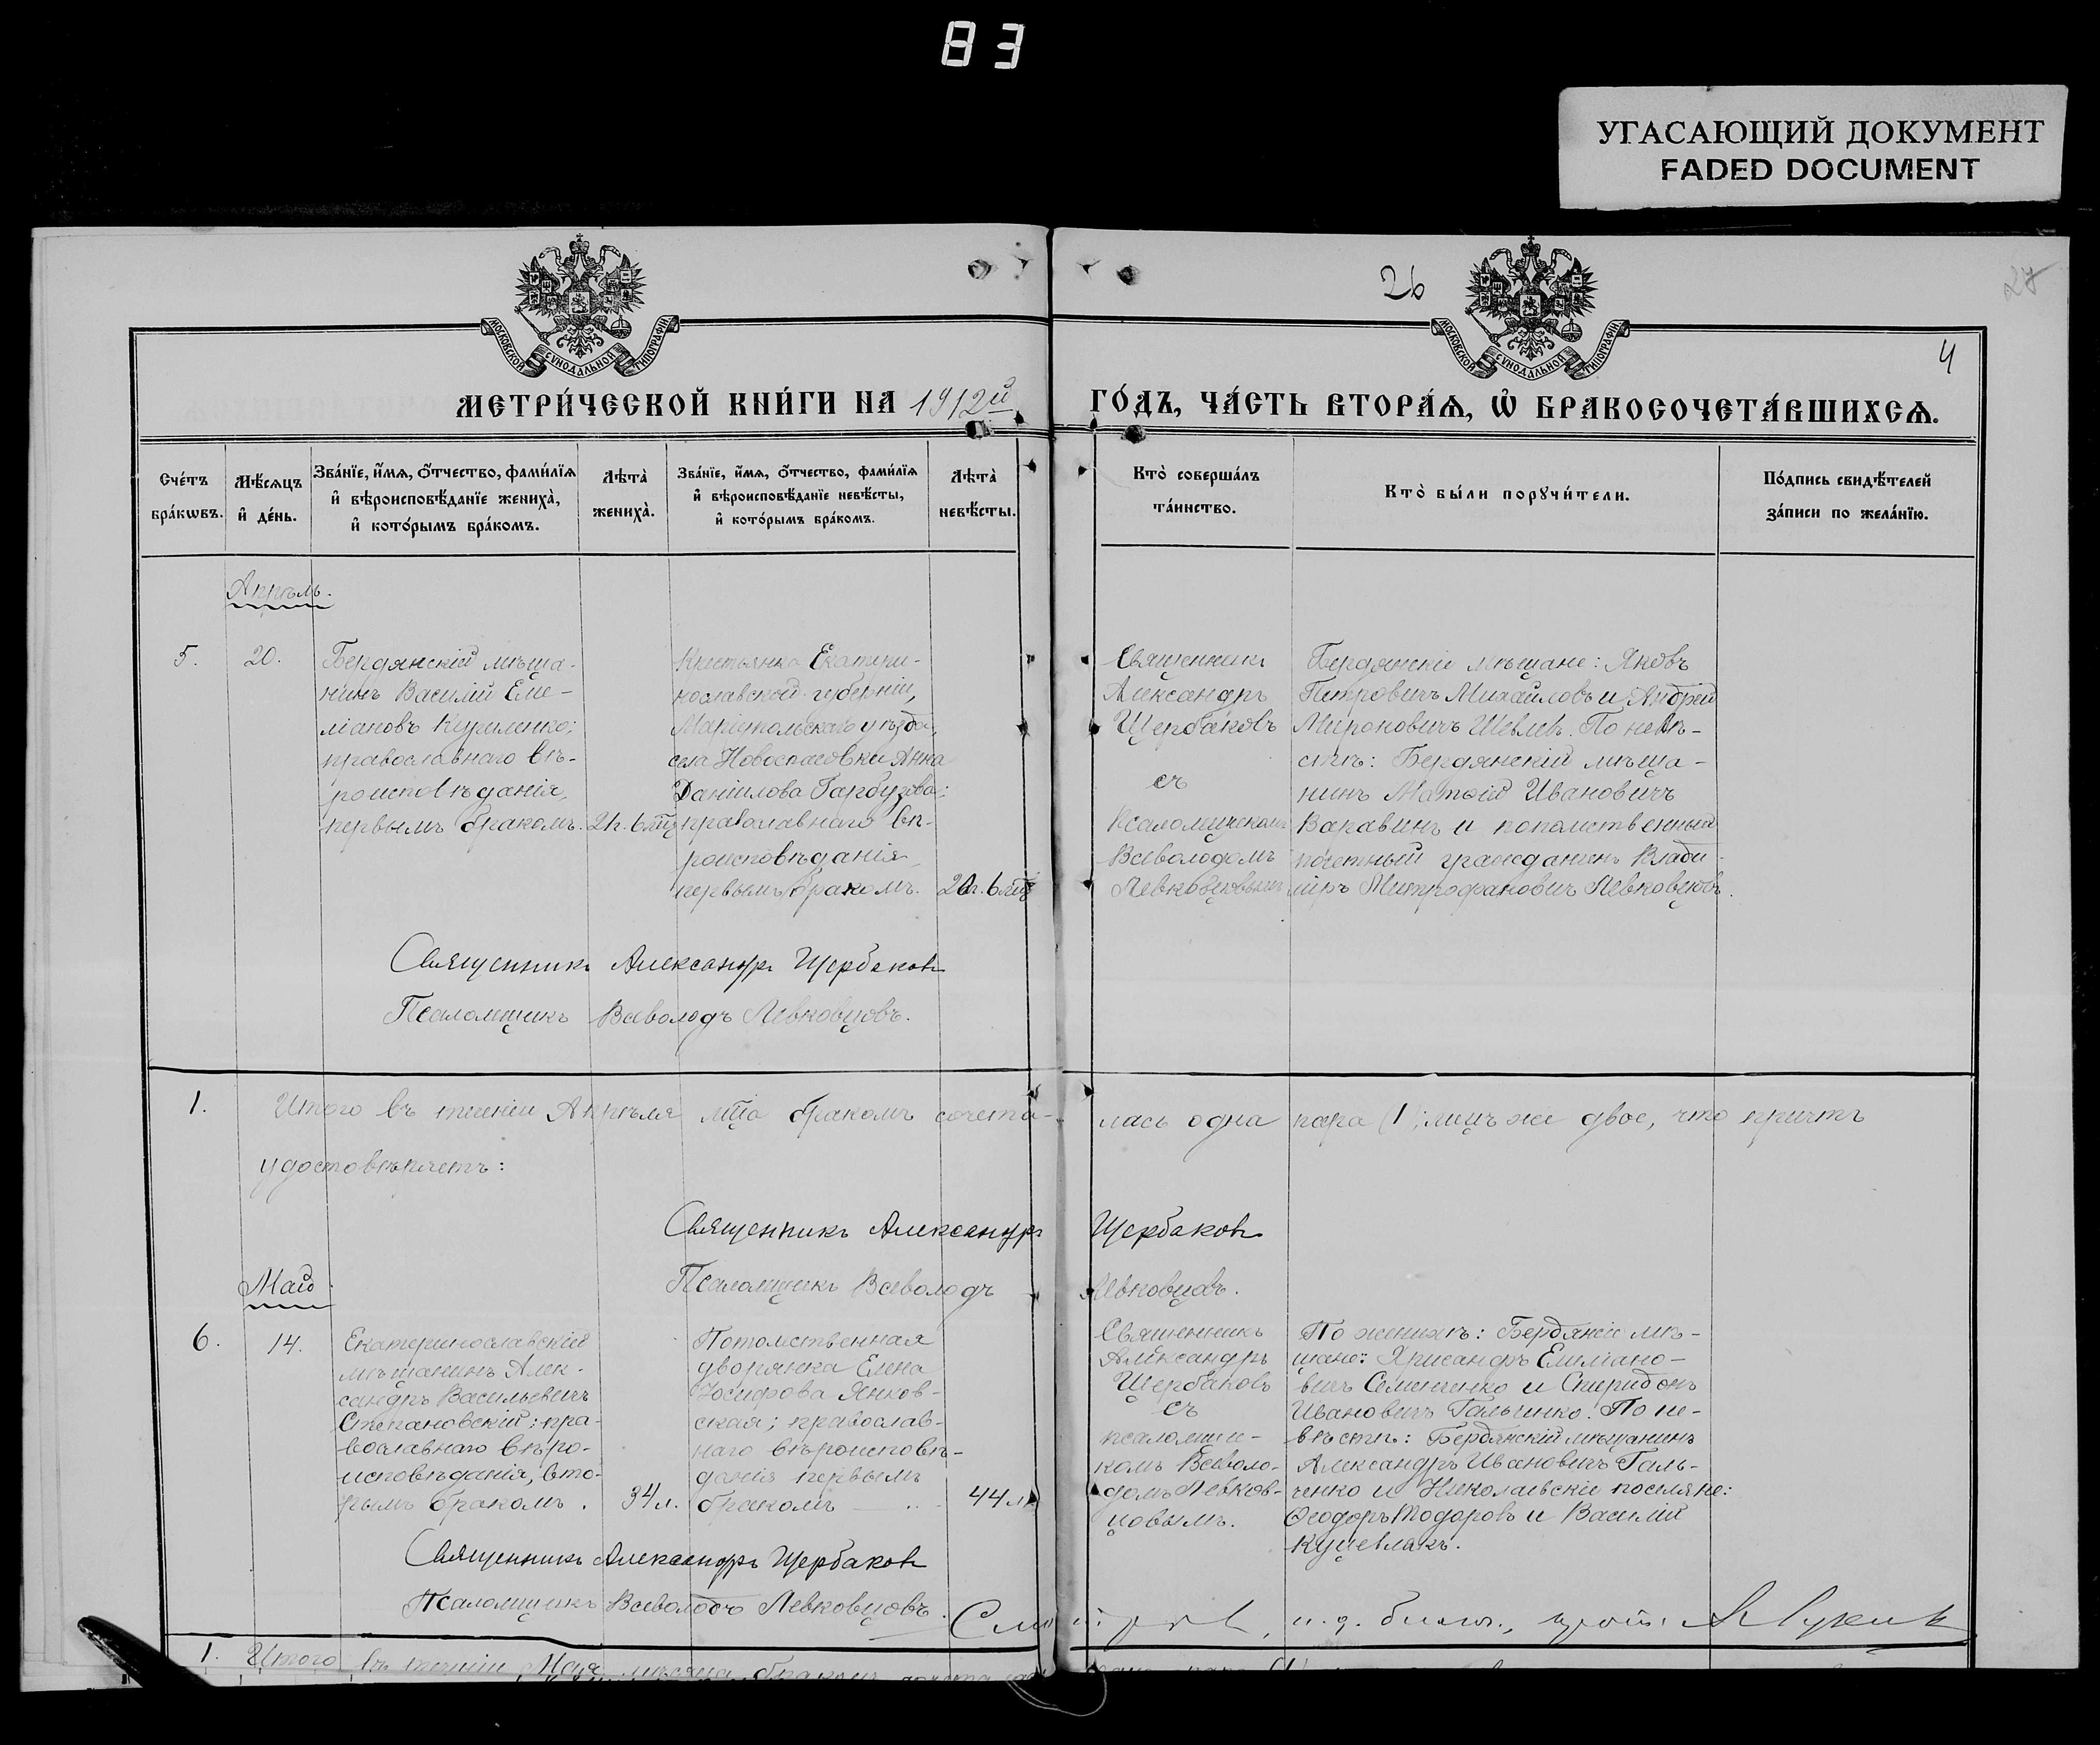 83
УГАСАЮЩИЙ ДОКУМЕНТ
FADED DOCUMENT
МОСКОВСКОЙ СѴНОДАЛЬНОЙ ТИПОГРАФІИ
26
МОСКОВСКОЙ СѴНОДАЛЬНОЙ ТИПОГРАФІИ
27
4
МЕТРИ́ЧЕСКОЙ КНИ́ГИ НА 1912й
ГО́ДЪ, ЧА́СТЬ ВТОРА́Ѧ, Ѽ БРАКОСОЧЕТА́ВШИХСѦ.
Сче́тъ
бра́кѡвъ.
Мѣ́сѧцъ
и҆ де́нь.
Зва́нїе, и҆́мѧ, ѻ҆́тчество, фами́лїѧ
и҆ вѣроисповѣ́данїе жениха̀,
и҆ кото́рымъ бра́комъ.
Лѣта̀
жениха̀.
Зва́нїе, и҆́мѧ, ѻ҆́тчество, фами́лїѧ
и҆ вѣроисповѣ́данїе невѣ́сты,
и҆ кото́рымъ бра́комъ.
Лѣта̀
невѣ́сты.
Кто̀ соверша́лъ
та́инство.
Кто̀ бы́ли порꙋчи́тели.
По́дпись свидѣ́телей
за́писи по жела́нїю.
Апрѣль.
5.
20.
Бердянскій мѣща-
нинъ Василій Еме-
ліановъ Куриленко;
православнаго вѣ-
роисповѣданія,
первымъ бракомъ.
21л. 6 мц
Крестьянка Екатери-
нославской губерніи,
Маріупольскаго уѣзда,
села Новоспасовки Анна
Даніилова Гарбузова;
православнаго вѣ-
роисповѣданія,
первымъ бракомъ.
20л. 6 мц
Священникъ
Александръ
Щербаковъ
съ
Псаломщикомъ
Всеволодомъ
Левковцовымъ
Бердянскіе мѣщане: Яковъ
Петровичъ Михайловъ и Андрей
Мироновичъ Шевлев. По невѣ-
стѣ: Бердянскій мѣща-
нинъ Матѳій Ивановичъ
Варавинъ и потомственный
почетный гражданинъ Влади-
міръ Митрофановичъ Левковцовъ.
Священникъ Александръ Щербаковъ
Псаломщикъ Всеволодъ Левковцовъ.
1. Итого въ теченіи Апрѣля мца бракомъ сочета-
лась одна пара (1); лицъ же двое, что причтъ
удостовѣряетъ:
Священникъ Александръ Щербаковъ
Псаломщикъ Всеволодъ Левковцовъ.
Май.
6.
14.
Екатеринославскій
мѣщанинъ Алек-
сандръ Васильевичъ
Степановскій; пра-
вославнаго вѣро-
исповѣданія, вто-
рымъ бракомъ.
34 л.
Потомственная
дворянка Елена
Іосифова Янков-
ская; православ-
наго вѣроисповѣ-
данія первымъ
бракомъ
44 л.
Священникъ
Александръ
Щербаковъ
съ
псаломщи-
комъ Всеволо-
домъ Левков-
цовымъ.
По женихѣ: Бердянскіе мѣ-
щане: Хрисанфъ Емиліано-
вичъ Семенченко и Спиридонъ
Ивановичъ Гальченко. По не-
вѣстѣ: Бердянскій мѣщанинъ
Александръ Ивановичъ Галь-
ченко и Николаевскіе поселяне:
Ѳеодоръ Тодоровъ и Василій
Куцевлакъ.
Священникъ Александръ Щербаковъ
Псаломщикъ Всеволодъ Левковцовъ.
и. д.
1. Итого въ теченіи Мая мѣсяца бракомъ